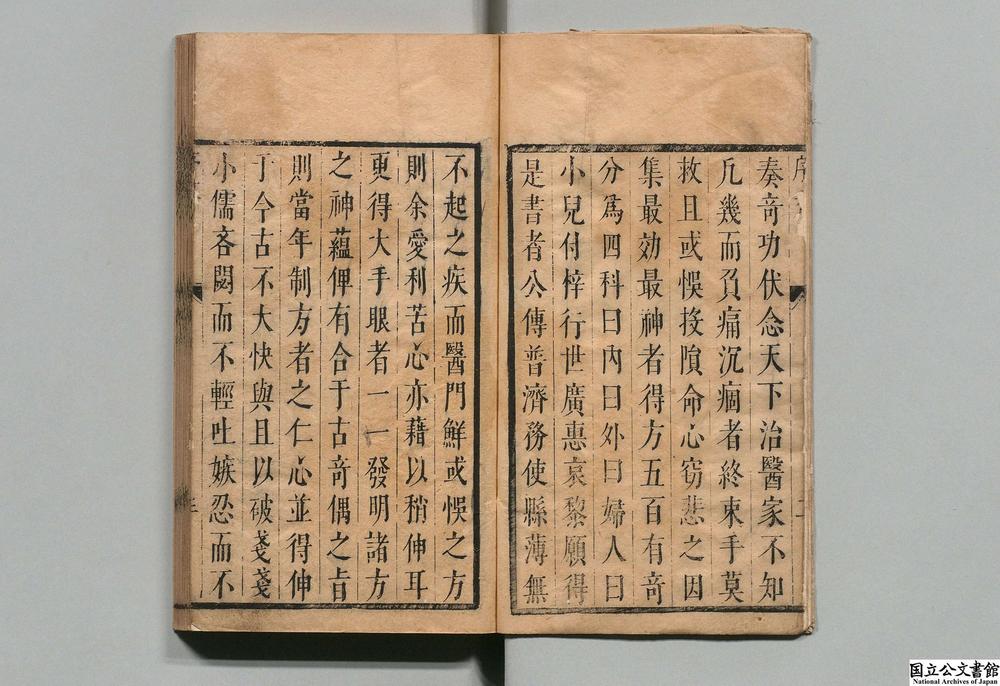 序
奏奇功伏念天下治醫家不知
凢幾而負痛沉痼者終束手莫
救且或悞投隕命心窃悲之因
集最効最神者得方五百有奇
分爲四科曰內曰外曰婦人曰
小兒付梓行世廣惠哀黎願得
是書者公傳普濟務使縣薄無
不起之疾而醫門鮮或悞之方
則余愛利苦心亦藉以稍伸耳
更得大手眼者一一發明諸方
之神蘊俾有合于古奇偶之旨
則當年制方者之仁心並得伸
于今古不大快與且以破戔戔
小儒吝閟而不輕吐嫉忍而不
国立公文書館
National Archives of Japan